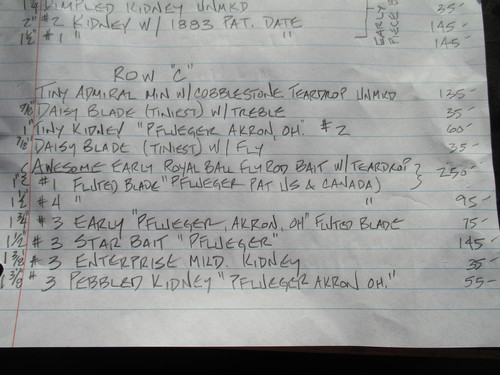 1¼ DIMPLED KIDNEY UNMKD 35-
2" #2 KIDNEY W/ 1883 PAT. DATE 145-
1½" #1 " " 145-
EARLY PIECES
ROW "C"
TINY ADMIRAL MIN W/COBBLESTONE TEARDROP UNMKD 135-
7/8" DAISY BLADE (TINIEST) W/TREBLE 35-
1" TINY KIDNEY "PFLUEGER AKRON, OH." #2 60-
7/8" DAISY BLADE (TINIEST) W/ FLY 35-
AWESOME EARLY ROYAL BALL FLY ROD BAIT W/TEARDROP
1½" #1 FLUTED BLADE "PFLUEGER PAT US & CANADA) 250-
1½" #4 " " 95-
1¾" #3 EARLY "PFLUEGER, AKRON, OH" FLUTED BLADE 75-
1½" #3 STAR BAIT "PFLUEGER" 145-
1⅜" #3 ENTERPRISE MKD. KIDNEY 35-
1⅜" #3 PEBBLED KIDNEY "PFLUEGER AKRON OH." 55-